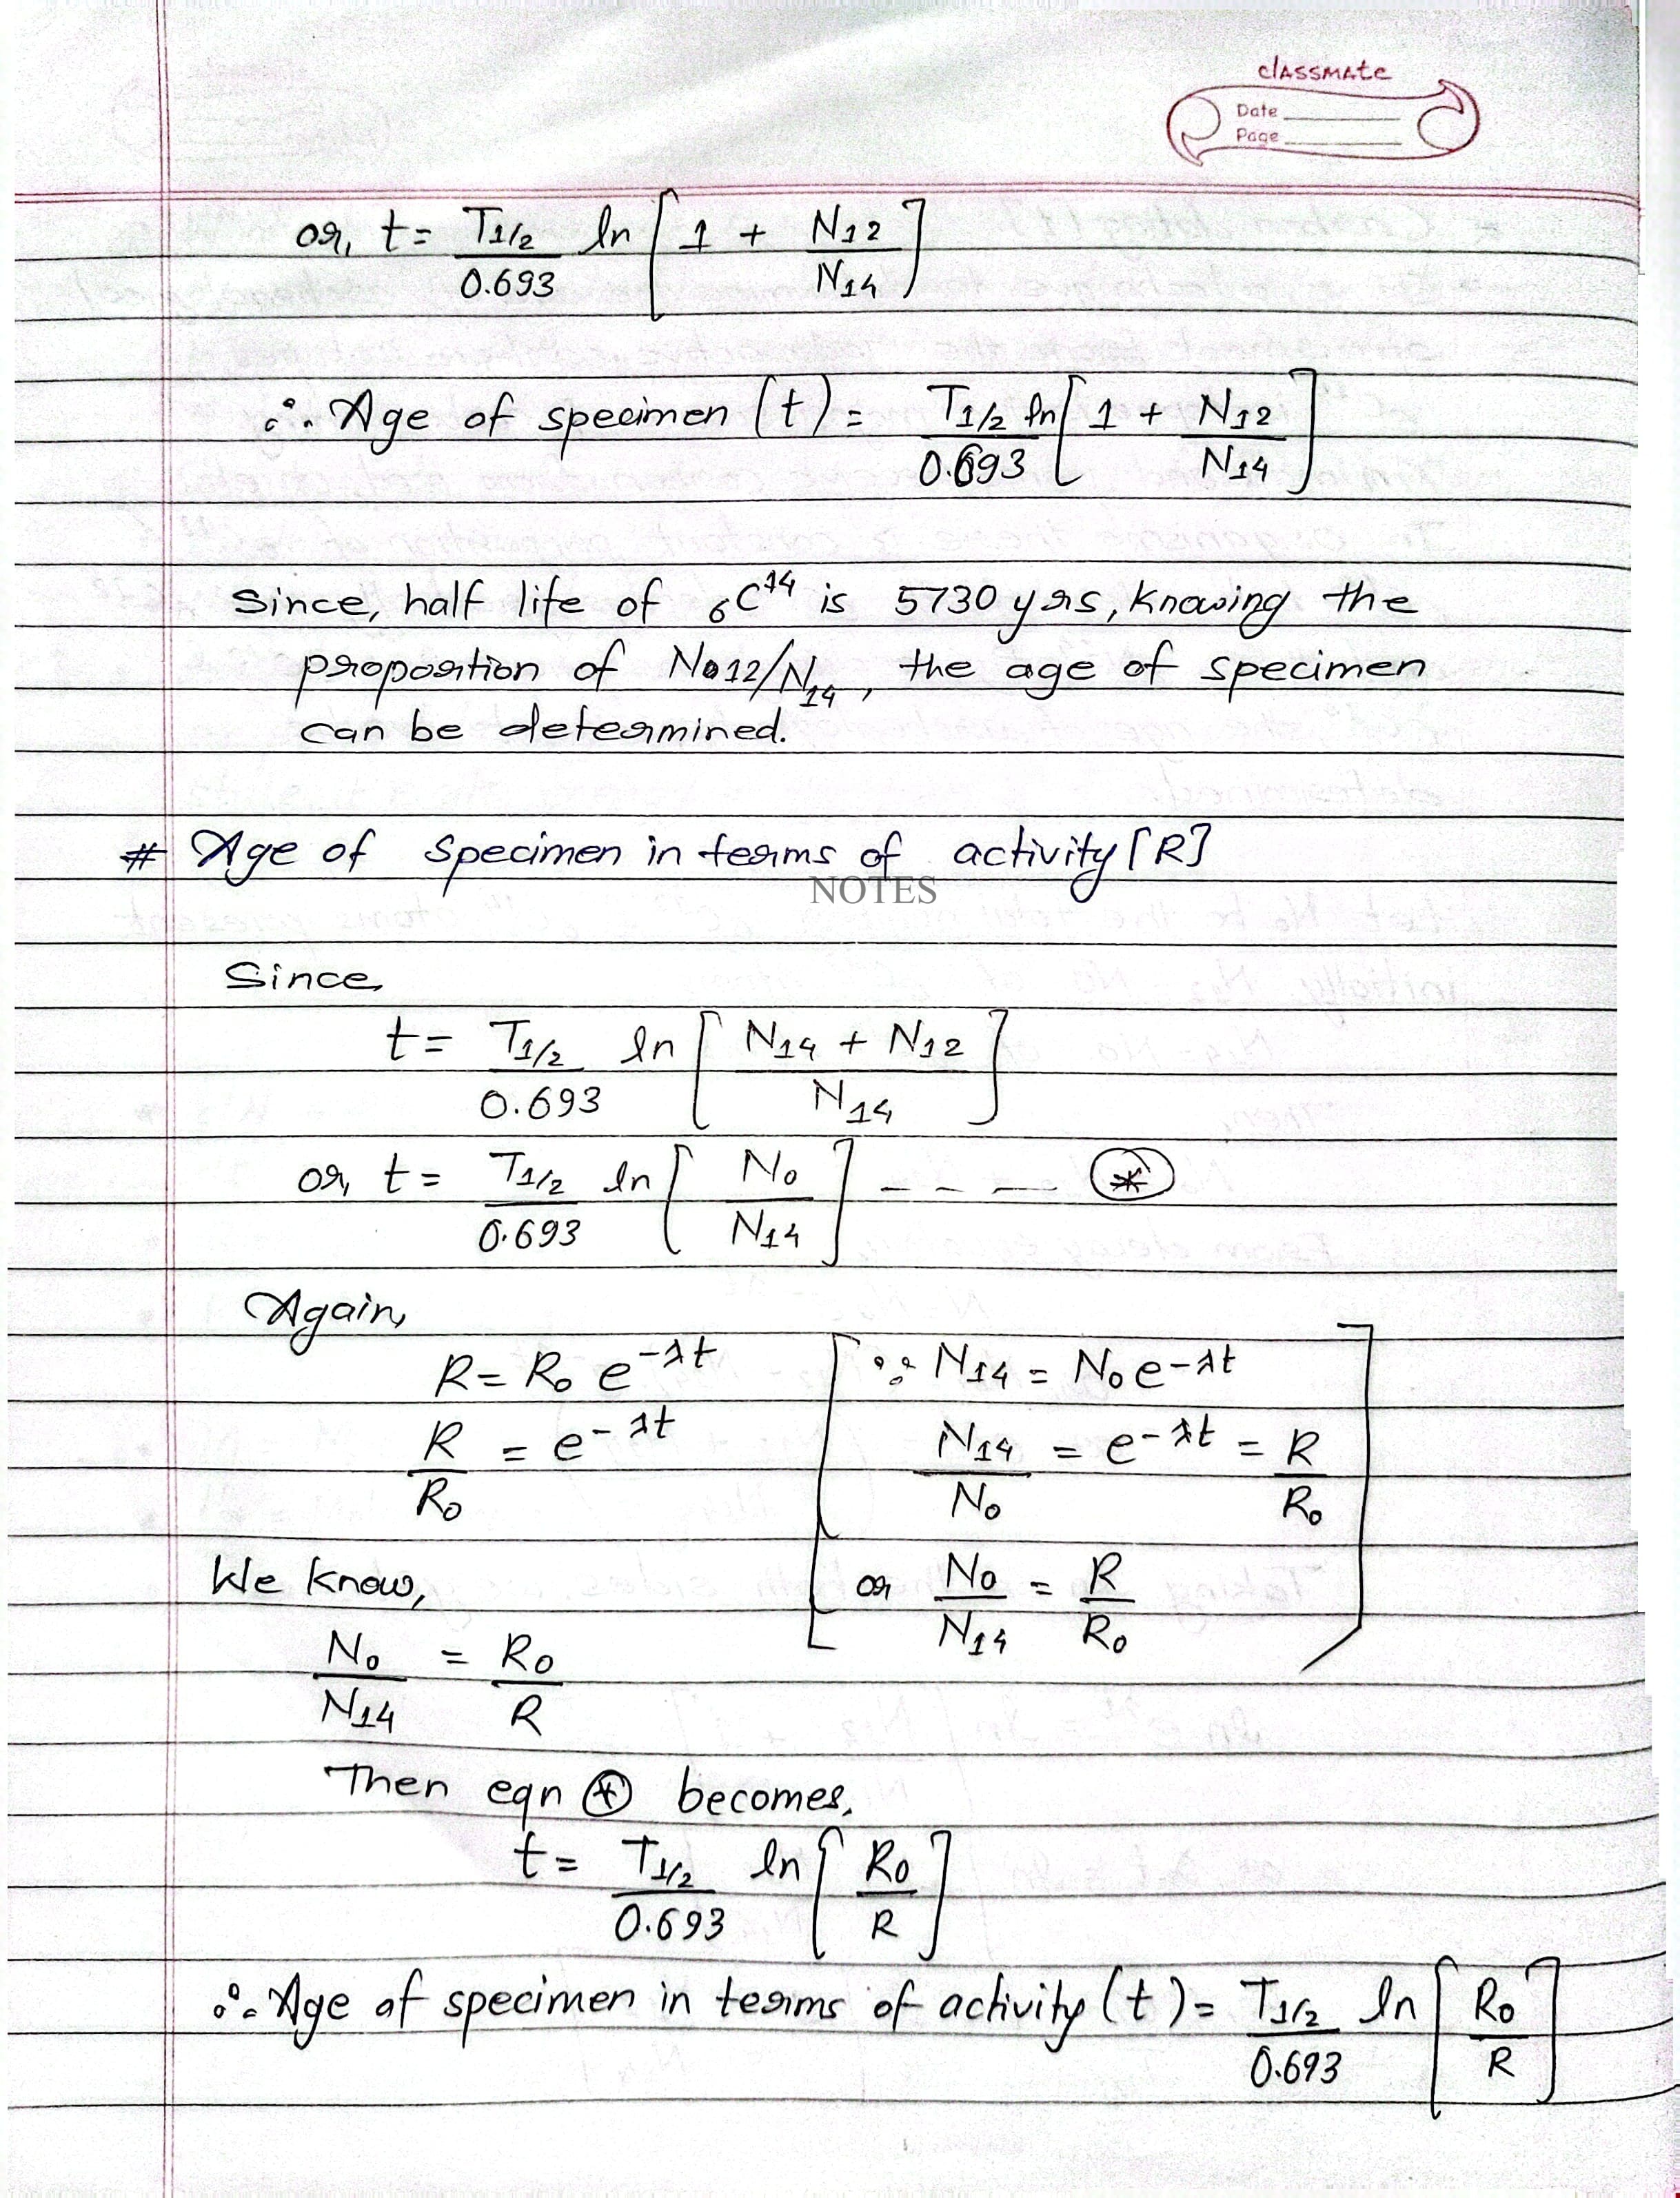 classmate
Date
Page
or, t = T1/2/0.693 ln [1 + N12/N14]
∴ Age of specimen (t) = T1/2/0.693 ln [1 + N12/N14]
Since, half life of ₆C¹⁴ is 5730 yrs, knowing the
proportion of N12/N14, the age of specimen
can be determined.
# Age of specimen in terms of activity [R]
NOTES
Since,
t = T1/2/0.693 ln [N14 + N12/N14]
or, t = T1/2/0.693 ln [N0/N14] - - - - (*)
Again,
R = R0 e^-λt
R/R0 = e^-λt
[∵ N14 = N0 e^-λt
N14/N0 = e^-λt = R/R0
or N0/N14 = R/R0]
We know,
N0/N14 = R0/R
Then eqn (*) becomes,
t = T1/2/0.693 ln [R0/R]
∴ Age of specimen in terms of activity (t) = T1/2/0.693 ln [R0/R]